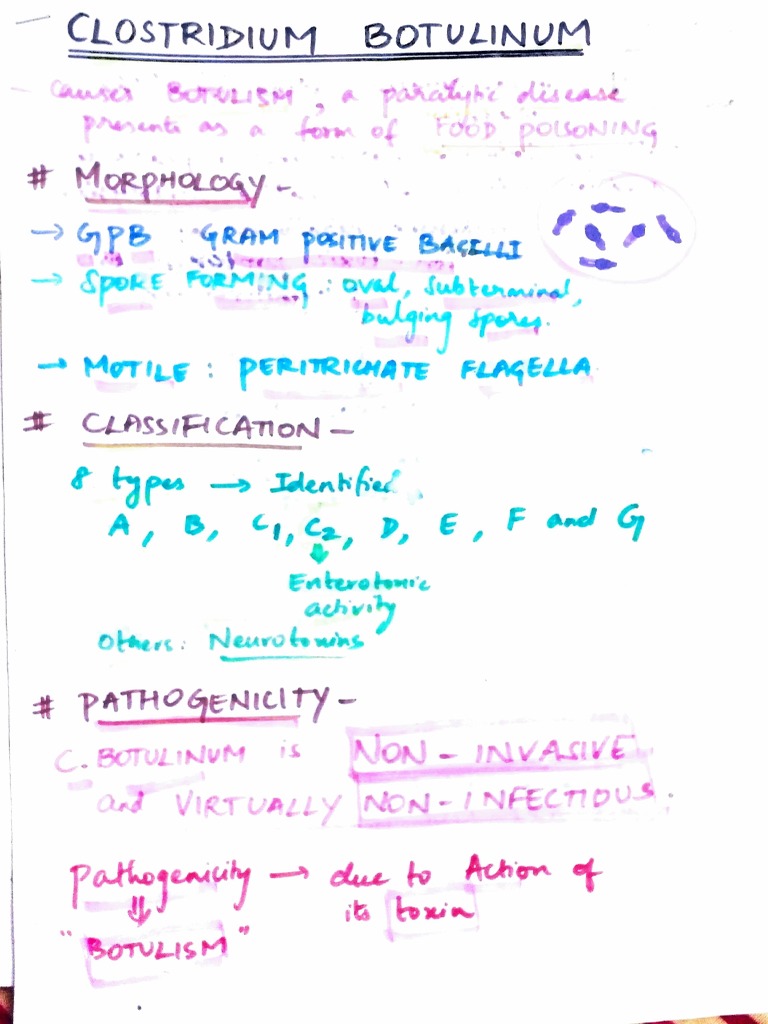 CLOSTRIDIUM BOTULINUM
- Causes "BOTULISM", a paralytic disease
presents as a form of FOOD POISONING
# MORPHOLOGY -
→ GPB : GRAM POSITIVE BACILLI
→ SPORE FORMING : oval, subterminal,
bulging spores.
→ MOTILE : PERITRICHATE FLAGELLA
# CLASSIFICATION -
8 types → Identified
A, B, C1, C2, D, E, F and G
↓
Enterotoxic
activity
Others: Neurotoxins
# PATHOGENICITY -
C. BOTULINUM is NON-INVASIVE
and VIRTUALLY NON-INFECTIOUS.
pathogenicity → due to Action of
its toxin
⇓
"BOTULISM"